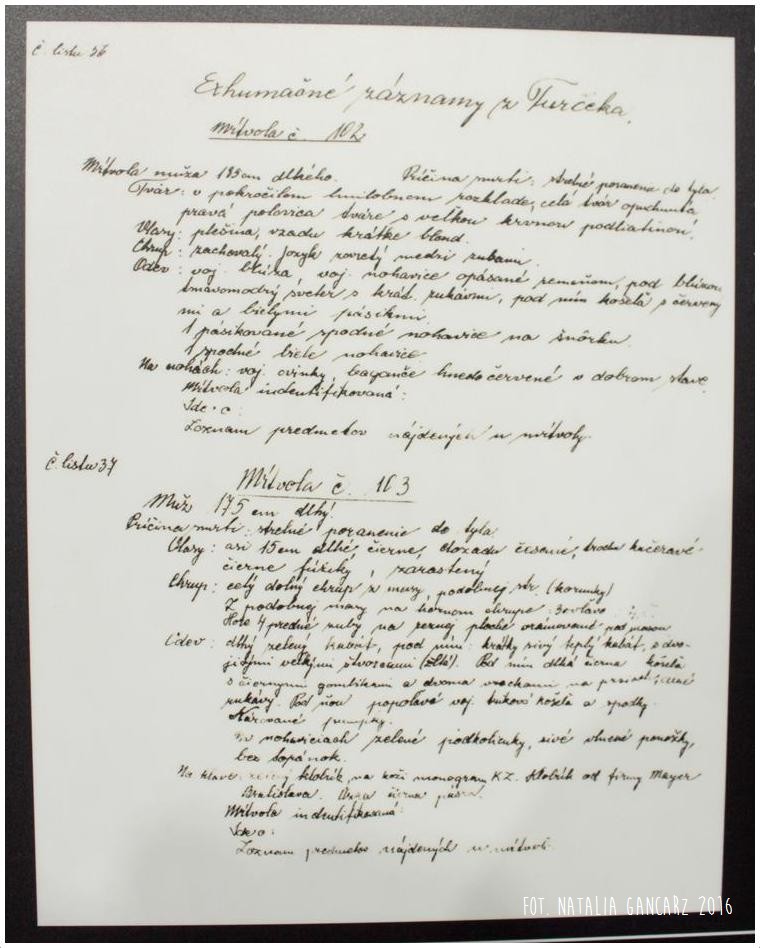 č. listu 36
Exhumačné záznamy z Turčeka.
Mŕtvola č. 102
Mŕtvola muža 183cm dlhého. Príčina smrti: strelné poranenie do tyla.
Tvár: v pokročilom hnilobnom rozklade, celá tvár opuchnutá,
pravá polovica tváre s veľkou krvnou podliatinou.
Vlasy: plešina, vzadu krátke blond.
Chrup: zachovalý. Jazyk zovretý medzi zubami.
Odev: voj. blúza, voj. nohavice opásané remeňom, pod blúzou
tmavomodrý sveter s krát. rukávmi, pod ním košeľa s červený
mi a bielymi pásikmi.
1 pásikované spodné nohavice na šnôrku.
1 spodné biele nohavice.
Na nohách: voj. ovinky, baganče hnedočervené v dobrom stave.
Mŕtvola indentifikovaná:
Ide o:
Zoznam predmetov nájdených u mŕtvoly.
č. listu 37
Mŕtvola č. 103
Muž 175 cm dlhý.
Príčina smrti: strelné poranenie do tyla.
Vlasy: asi 15cm dlhé, čierne, dozadu česané, trochu kučeravé
čierne fúziky, zarastený
Chrup: celý dolný chrup z masy, podobnej str. (korunky)
Z podobnej masy na hornom chrupe: 3 vľavo
Hore 4 predné zuby na zadnej ploche
Odev: dlhý zelený kabát, pod ním: krátky sivý teplý kabát, s dvo-
jitými veľkými Pod ním dlhá čierna košeľa
s čiernymi gombíkami a dvoma vreckami na
rukávy. Pod ňou popolavá voj. košeľa a spodky.
Kárované pumpky.
V nohaviciach zelené podkolienky, sivé vlnené ponožky,
bez topánok.
Na hlave: zelený klobúk, na koži monogram KZ. Klobúk od firmy Mayer
Bratislava. čierna
Mŕtvola indentifikovaná:
Ide o:
Zoznam predmetov nájdených u mŕtvoli.
FOT. NATALIA GANCARZ 2016